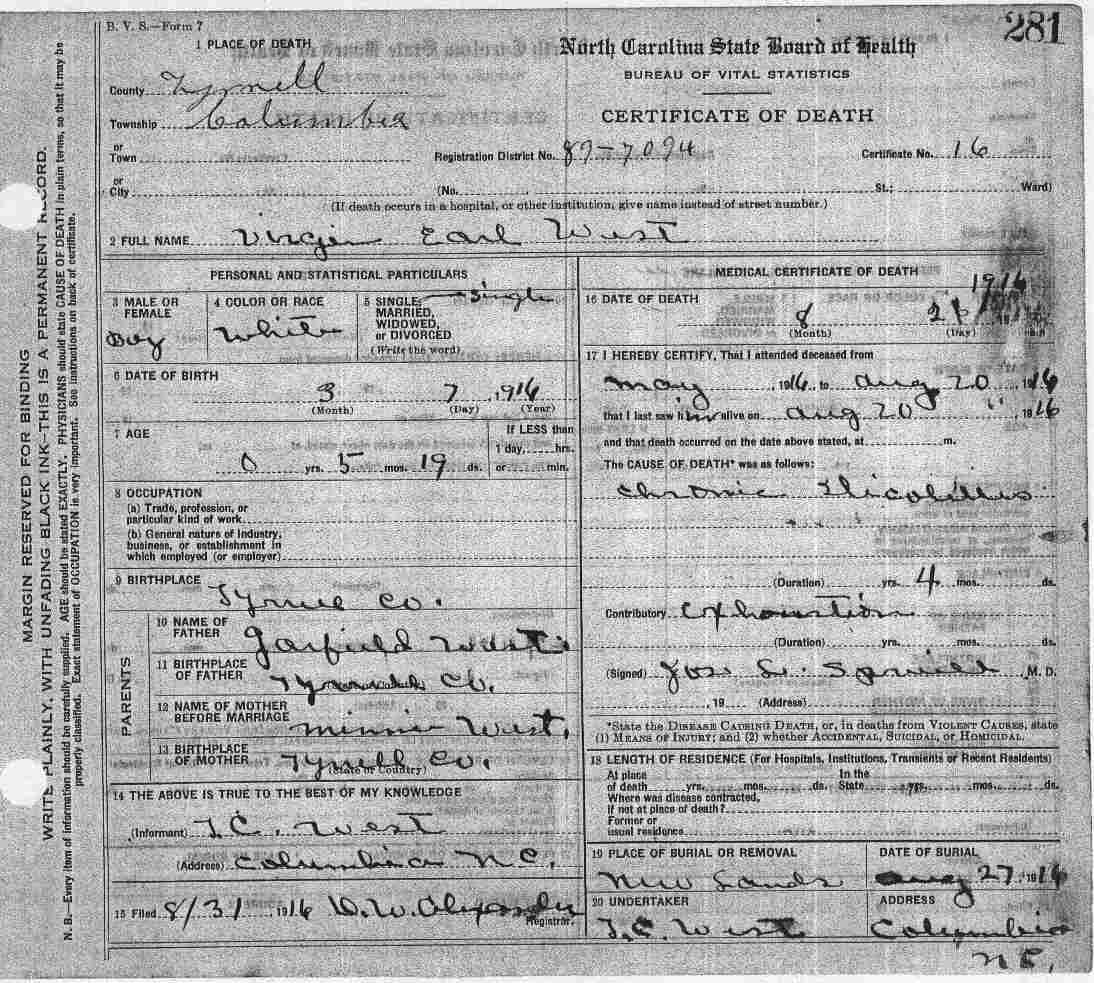 B. V. S.—Form 7
281
1 PLACE OF DEATH
North Carolina State Board of Health
BUREAU OF VITAL STATISTICS
CERTIFICATE OF DEATH
County Tyrrell
Township Columbia
or
Town
Registration District No. 89-7094
Certificate No. 16
or
City (No. St.; Ward)
(If death occurs in a hospital, or other institution, give name instead of street number.)
2 FULL NAME Virgin Earl West
PERSONAL AND STATISTICAL PARTICULARS
3 MALE OR FEMALE
Boy
4 COLOR OR RACE
White
5 SINGLE, MARRIED, WIDOWED, or DIVORCED
(Write the word)
Single
6 DATE OF BIRTH
3 7 1916
(Month) (Day) (Year)
7 AGE
0 yrs. 5 mos. 19 ds.
If LESS than
1 day, hrs.
or min.
8 OCCUPATION
(a) Trade, profession, or
particular kind of work
(b) General nature of Industry,
business, or establishment in
which employed (or employer)
9 BIRTHPLACE
Tyrrell Co.
PARENTS
10 NAME OF FATHER
Garfield West.
11 BIRTHPLACE OF FATHER
Co.
12 NAME OF MOTHER BEFORE MARRIAGE
Minnie West.
13 BIRTHPLACE OF MOTHER
(State or Country)
Tyrrell Co.
14 THE ABOVE IS TRUE TO THE BEST OF MY KNOWLEDGE
(Informant) T.C. West
(Address) Columbia N.C.
15 Filed 8/31 1916
Registrar.
MEDICAL CERTIFICATE OF DEATH
16 DATE OF DEATH
1916
8 26
(Month) (Day)
17 I HEREBY CERTIFY, That I attended deceased from
May 1916 to Aug 20 1916
that I last saw him alive on Aug 20 " 1916
and that death occurred on the date above stated, at m.
The CAUSE OF DEATH* was as follows:
Chronic
(Duration) yrs. 4 mos. ds.
Contributory Exhaustion
(Duration) yrs. mos. ds.
(Signed) Jos. L. Spruill, M. D.
, 19 (Address)
*State the DISEASE CAUSING DEATH, or, in deaths from VIOLENT CAUSES, state
(1) MEANS OF INJURY; and (2) whether ACCIDENTAL, SUICIDAL, or HOMICIDAL.
18 LENGTH OF RESIDENCE (For Hospitals, Institutions, Transients or Recent Residents)
At place of death yrs. mos. ds. In the State yrs. mos. ds.
Where was disease contracted,
If not at place of death?
Former or
usual residence
19 PLACE OF BURIAL OR REMOVAL
New Lands
DATE OF BURIAL
Aug 27 1916
20 UNDERTAKER
T.C. West
ADDRESS
Columbia
N.C.
MARGIN RESERVED FOR BINDING
WRITE PLAINLY, WITH UNFADING BLACK INK—THIS IS A PERMANENT RECORD.
N. B.—Every item of information should be carefully supplied. AGE should be stated EXACTLY. PHYSICIANS should state CAUSE OF DEATH in plain terms, so that it may be
properly classified. Exact statement of OCCUPATION is very important. See instructions on back of certificate.